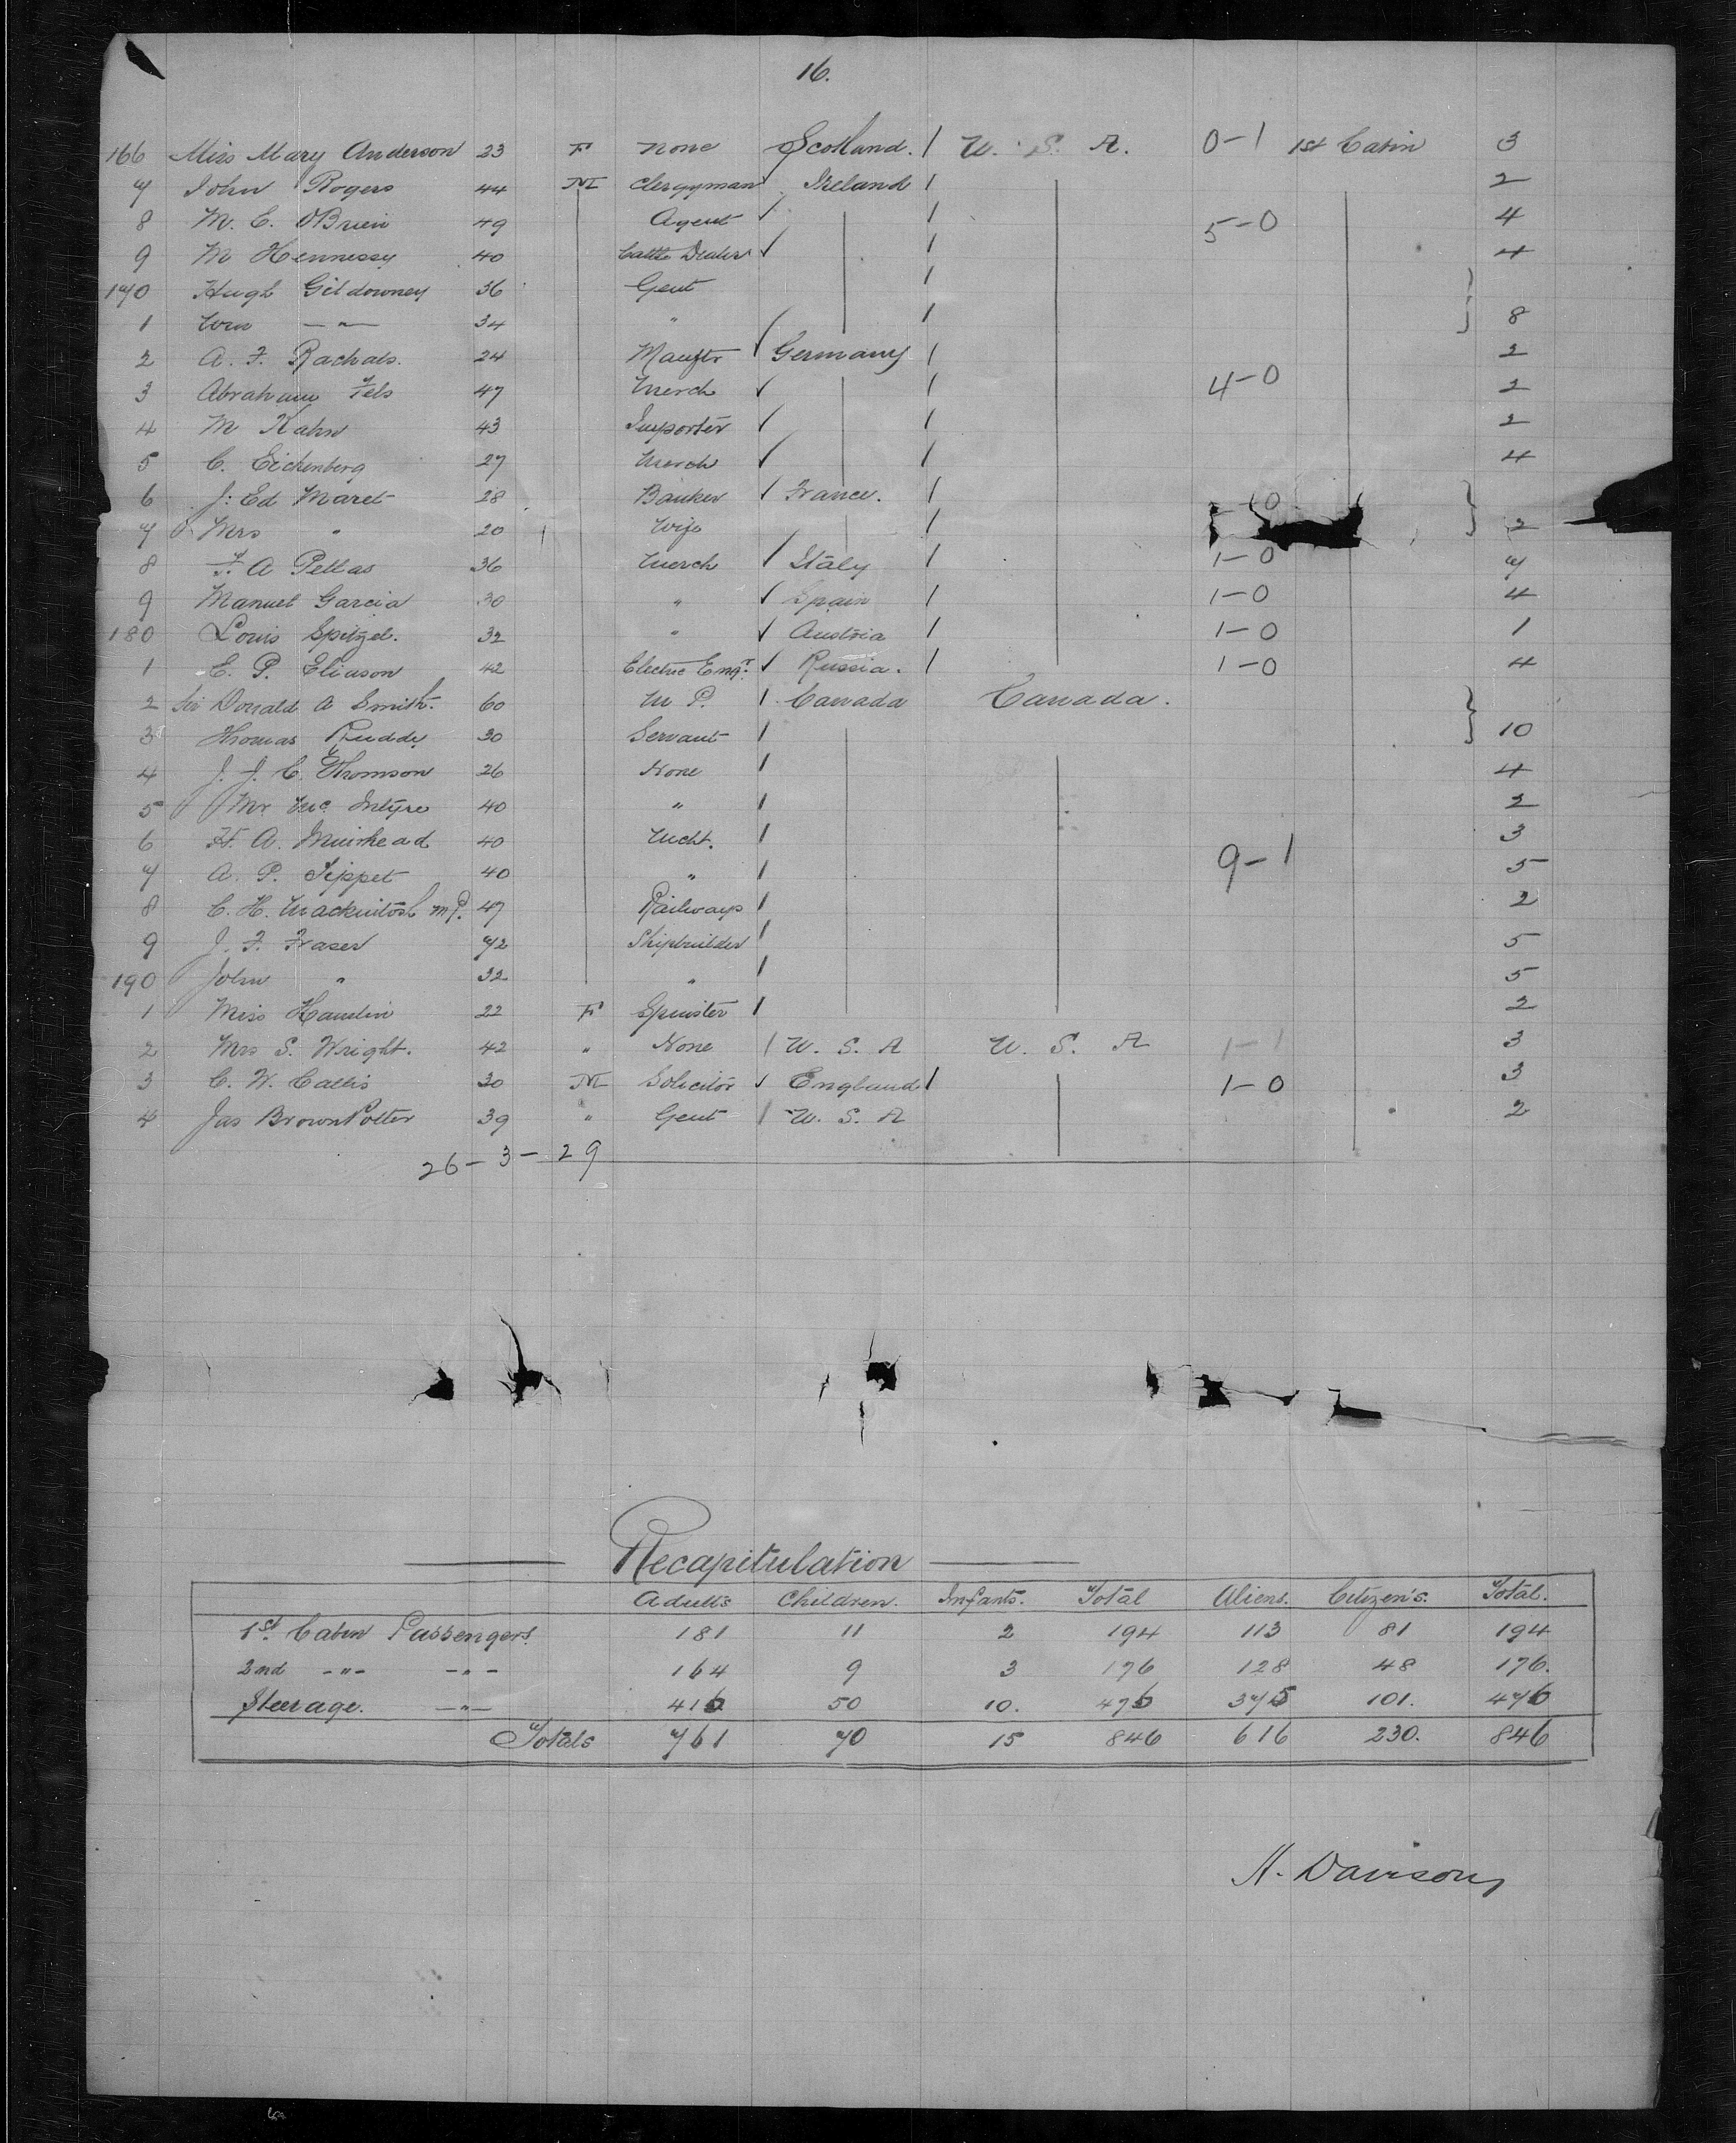 16.
166 Miss Mary Anderson 23 F None Scotland. / U. S. A. 0-1 1st Cabin 3
7 John Rogers 44 M Clergyman Ireland / 2
8 M. E. O'Brien 49 Agent ✓ / 5-0 4
9 M Hennessy 40 Cattle Dealer ✓ / 4
170 Hugh Gildowney 36 Gent /
1 Wm -"- 34 " ✓ / 8
2 A. F. Rachals. 24 Manftr ✓ Germany / 2
3 Abraham Fels 47 Merch ✓ / 4-0 2
4 M Kahn 43 Importer ✓ / 2
5 C. Eichenberg 27 Merch ✓ / 4
6 J. Ed Maret 28 Banker / France. / -0
7 Mrs " 20 Wife / 2
8 F. A Pellas 36 Merch / Italy / 1-0 7
9 Manuel Garcia 30 " ✓ Spain / 1-0 4
180 Louis Spitzel. 32 " ✓ Austria / 1-0 1
1 E. P. Eliason 42 Electric Engr. ✓ Russia. / 1-0 4
2 Sir Donald A Smith. 60 M P. / Canada Canada.
3 Thomas Ruddy 30 Servant / 10
4 J. J. C. Thomson 26 None / 4
5 Mr Mc Intyre 40 " / 2
6 H. A. Muirhead 40 Mcht. / 3
7 A. P. Tippet 40 " / 9-1 5
8 C. H. Mackintosh M P. 47 Railways / 2
9 J. F. Fraser 72 Shipbuilder / 5
190 John " 32 " / 5
1 Miss Hamlin 22 F Spinster / 2
2 Mrs S. Wright. 42 " None / U. S. A U. S. A 1-1 3
3 C. W. Callis 30 M Solicitor ✓ England / 1-0 3
4 Jas Brown Potter 39 " Gent / U. S. A 2
26-3-29
Recapitulation
Adults Children. Infants. Total Aliens. Citizen's. Total.
1st. Cabin Passengers. 181 11 2 194 113 81 194
2nd -"- -"- 164 9 3 176 128 48 176.
Steerage. -"- 416 50 10. 476 375 101. 476
Totals 761 70 15 846 616 230. 846
H. Davison